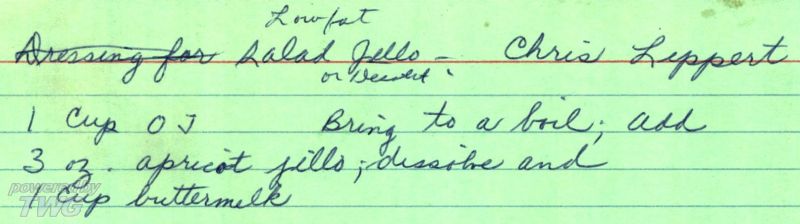 Lowfat
Dressing for Salad Jello - Chris Leppert
or Dessert.
1 Cup OJ Bring to a boil; add
3 oz. apricot jello; dissolve and
1 Cup buttermelk
powered by
TWG